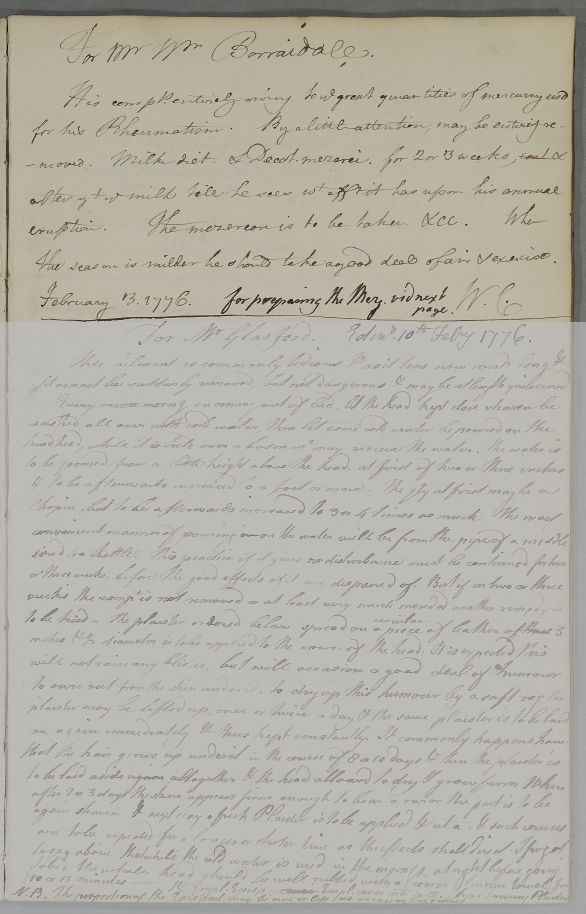 For Mr Wm Borraidale.
His complt. entirely owing to ye great quantities of mercury used
for his Rheumatism. By a little attention, may be entirely re-
-moved. Milk diet & Decoct. mezerei. for 2 or 3 weeks, &
after yt ye milk till he sees wt effect it has upon his annual
eruption. The mezereon is to be taken &cc. When
the season is milder he should take a good deal of air & exercise.
February 13. 1776. for preparing the Mez. vid next page. W. C.
For Mr Glasford. Edinr. 10th Febry 1776.
This ailment is commonly tedious & as it has now contd long
it cannot be suddenly removed, but not dangerous & may be at length quite cured
Every morng. on coming out of bed, let the head kept close shaven be
washed all over with cold water, then let some cold water be poured on the
head, while it is held over a bason wc. may receive the water. The water is
to be poured from a little height above the head, at first of two or three inches
& to be afterwards increased to a foot or more. The qty at first may be a
Chopin, but to be afterwards increased to 3 or 4 times as much. The most
convenient manner of pouring on the water will be from the pipe of a middle
sized tea kettle. This practice if it gives no disturbance must be continued for two
or three weeks, before the good effects of it are despaired of. But if in two or three
weeks the compt is not removed or at least very much mended another remedy is
to be tried. The plaister ordered below spread on a circular piece of leather of three 3
inches & ½ diameter is to be applied to the crown of the head. It is expected this
will not raise any blister, but will occasion a good deal of humour
to ouze out from the skin under it. to dry up this humour by a soft rag the
plaister may be lifted up, once or twice a day & the same plaister is to be laid
on again immediately & thus kept constantly. It commonly happens however
that the hair grows up under it in the course of 8 or 10 days & then the plaister is
to be laid aside again altogether & the head allowed to dry & grow firm. When
after 2 or 3 days the skin appears firm enough to bear a razor the part is to be
again shaven & next day a fresh Plaister is to be applied & such courses
are to be repeated for a longer or shorter time as the effects shall direct. I forgot
to say above that while the cold water is used in the morngs. at night before going
to bed the whole head should be well rubbed with a coarse linnen towel for
10 or 15 minutes
N.B. The proportion of the may be more or less as occasion